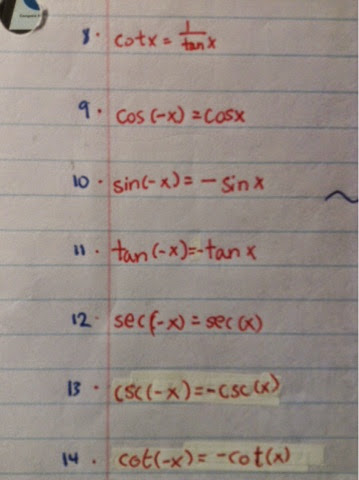 8. cotx = 1/tan x
9. cos(-x) = cosx
10. sin(-x) = - sin x
11. tan(-x)=-tan x
12. sec(-x) = sec(x)
13. csc(-x) = -csc(x)
14. cot(-x) = -cot(x)